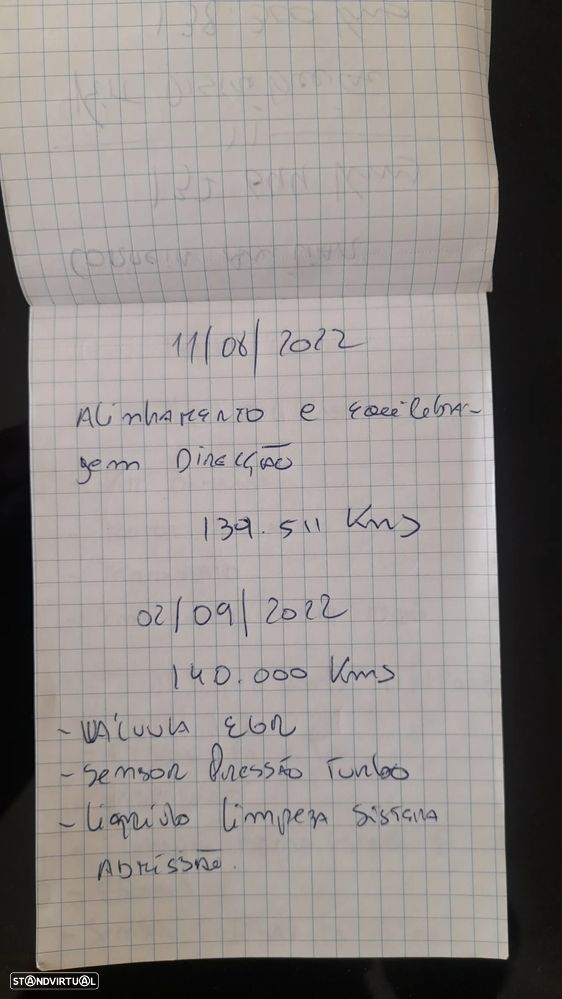 11/08/2022
Alinhamento e equilibra-
gem Direcção
139.511 Kms
02/09/2022
140.000 Kms
- Válvula EGR
- Sensor Pressão Turbo
- Liquido limpeza Sistema
Admissão.
STANDVIRTUAL